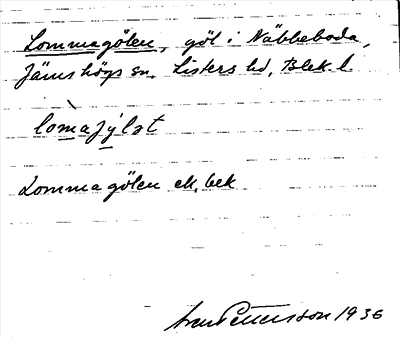 Lommagölen, göl i Näbbeboda,
Jämshögs sn, Listers hd, Blek. l.
lòmajylət
Lommagölen ek. bek
Pettersson 1936